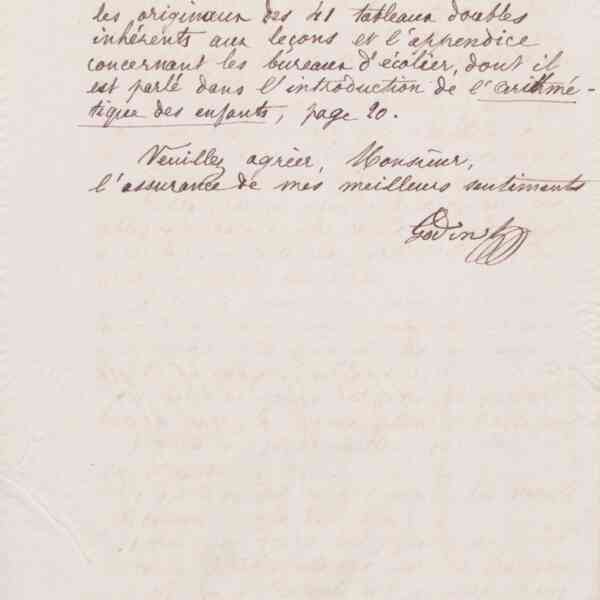 les originaux des 41 tableaux doubles
inhérents aux leçons et l'appendice
concernant les bureaux d'écolier, dont il
est parlé dans l'introduction de l'arithmé-
tique des enfants, page 20.
Veuillez agréer, Monsieur,
l'assurance de mes meilleurs sentiments
Godin